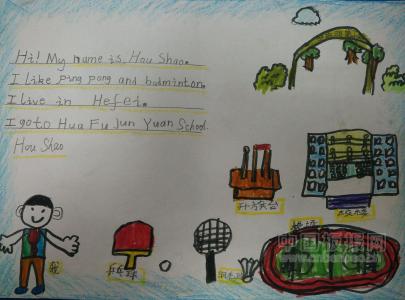 Hi! My name is Hou Shao.
I like ping pong and badminton.
I live in Hefei.
I go to Hua Fu Jun Yuan School.
Hou Shao
操场
我
乒乓球